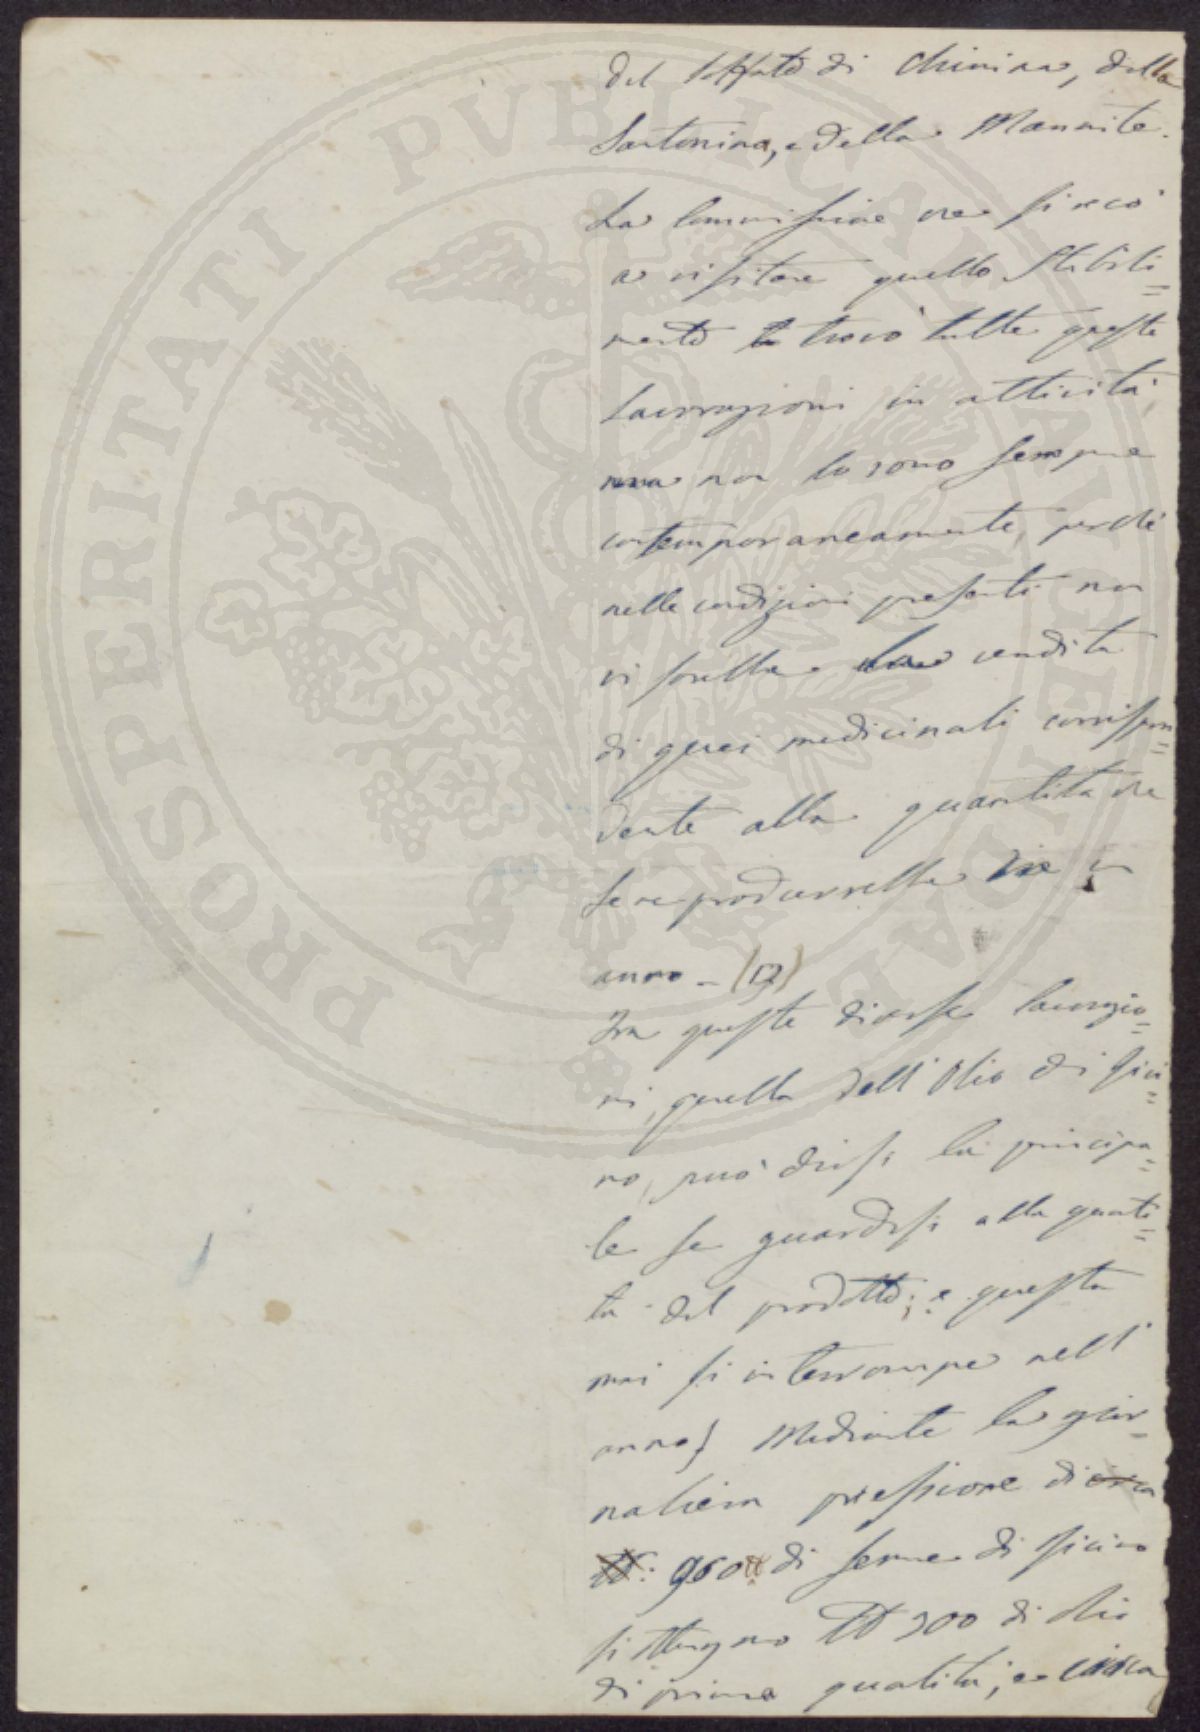 del Solfato di Chinina, della
Santonina, e della Mannite.
La Commissione che si recò
a visitare quello Stabili=
mento trovò tutte queste
lavorazioni in attività,
ma non lo sono sempre
contemporaneamente, perchè
nelle condizioni presenti non
vi sarebbe la vendita
di quei medicinali corrispon=
dente alla quantità che
se ne produrrebbe in
anno - (
Fra queste diverse lavorazio=
ni, quella dell'Olio di Rici=
no, può dirsi la principa=
le se guardisi alla quanti=
tà del prodotto; e questa
mai si interrompe nell'
anno} Mediante la gior=
naliera pressione di circa
960 ℔ di seme di Ricino
si ottengono ℔ 300 di Olio
di prima qualità; e circa
PROSPERITATI PVBLICAE AVGENDAE